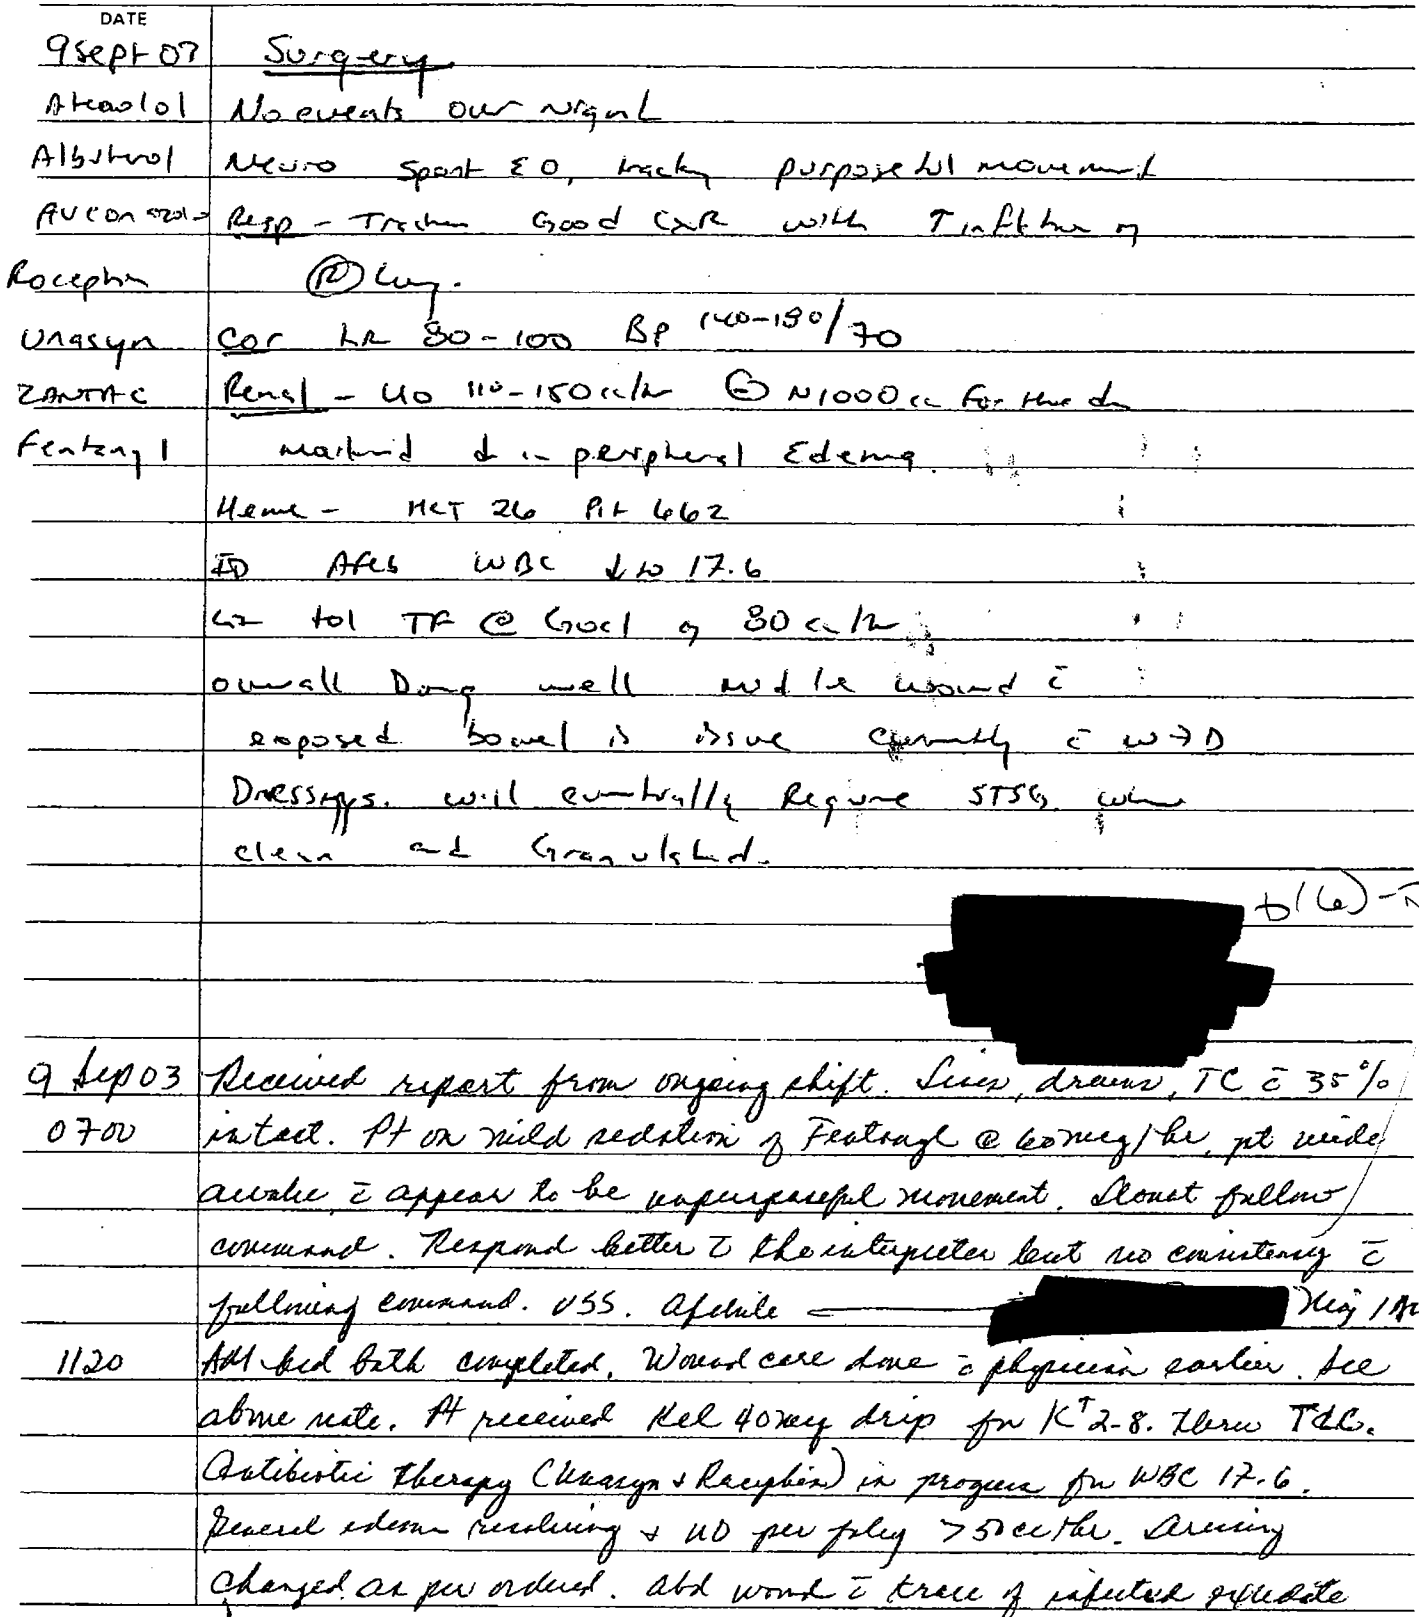 DATE
9 Sept 03 Surgery
Atenolol No events over night
Albuterol Neuro Spont EO, tracking purposeful movement
Resp - Trach Good CXR with
Rocephin Ⓡ Lung.
Unasyn Cor HR 80-100 BP 140-180/70
ZANTAC Renal - UO 110-150 cc/hr ⊖ ~1000 cc for the day
Fentanyl marked ↓ in peripheral Edema.
Heme - HCT 26 Plt 662
ID Afeb WBC ↓ to 17.6
GI tol TF @ Goal of 80 cc/hr
overall Doing well midline wound c̄
exposed bowel is issue currently c̄ W→D
Dressings. will eventually Require STSG when
clean and Granulated.
b(6)-
9 Sep 03 Received report from ongoing shift. Lines, drains, TC c̄ 35%
0700 intact. Pt on mild sedation of Fentanyl @ 60 mcg/hr, pt wide
awake, c̄ appear to be unpurposeful movement. Do not follow
command. Respond better c̄ the interpreter but no consistency c̄
following command. VSS. Afebrile Maj /AN
1120 AM bed bath completed. Wound care done c̄ physician earlier. See
above note. Pt received Kcl 40 meq drip for K⁺ 2.8. thru TLC.
Antibiotic therapy (Unasyn + Rocephin) in progress for WBC 17.6.
General edema resolving + UO per foley >50cc/hr. Dressing
changed as per ordered. Abd wound c̄ trace of infected exudate